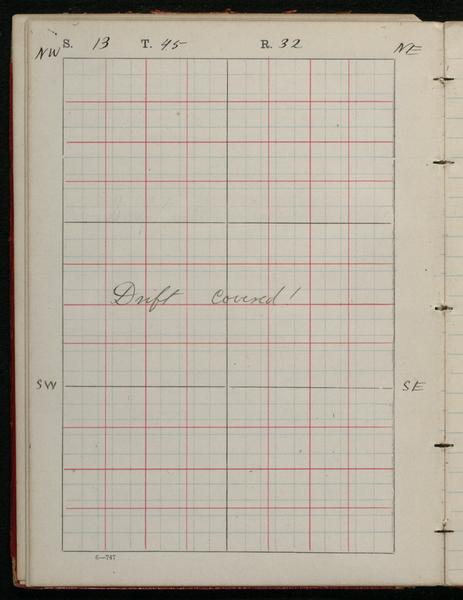 S. 13 T. 45 R. 32
NW NE
Drift covered!
SW SE
6—747